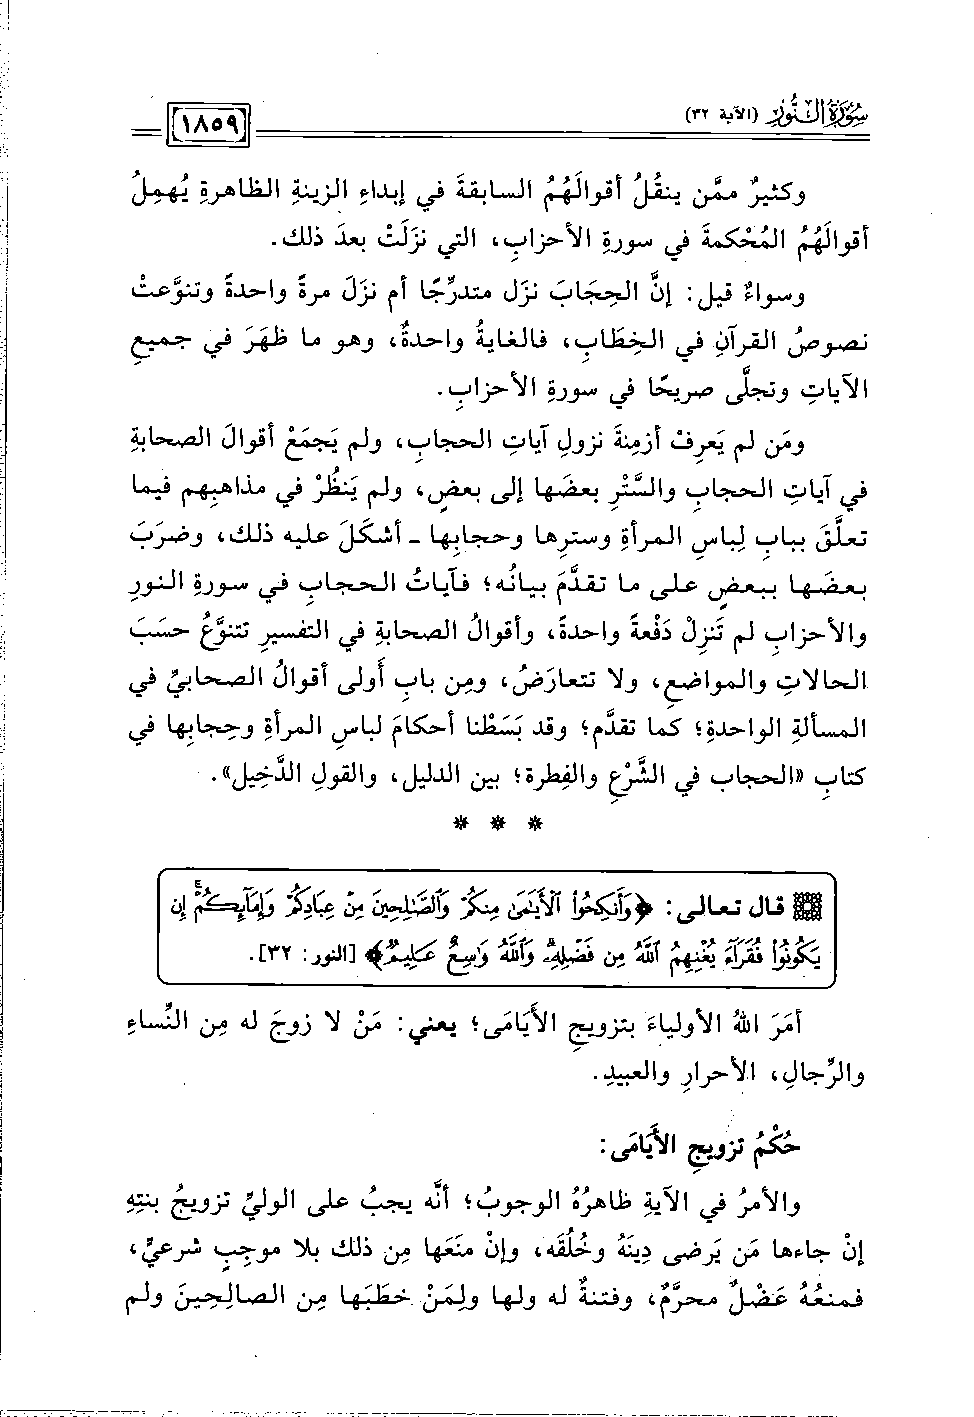 سُورَةُ النُّورِ (الآية ٣٢)
١٨٥٩
وكثيرٌ ممَّن ينقُلُ أقوالَهُمُ السابقةَ في إبداءِ الزينةِ الظاهرةِ يُهمِلُ
أقوالَهُمُ المُحْكمةَ في سورةِ الأحزابِ، التي نزَلَتْ بعدَ ذلك.
وسواءٌ قيل: إنَّ الحِجَابَ نزَل متدرِّجًا أم نزَلَ مرةً واحدةً وتنوَّعتْ
نصوصُ القرآنِ في الخِطَابِ، فالغايةُ واحدةٌ، وهو ما ظهَرَ في جميعِ
الآياتِ وتجلَّى صريحًا في سورةِ الأحزابِ.
ومَن لم يَعرِفْ أزمِنةَ نزولِ آياتِ الحجابِ، ولم يَجمَعْ أقوالَ الصحابةِ
في آياتِ الحجابِ والسَّتْرِ بعضَها إلى بعضٍ، ولم يَنظُرْ في مذاهبِهم فيما
تعلَّقَ ببابِ لِباسِ المرأةِ وسترِها وحجابِها ـ أشكَلَ عليه ذلك، وضرَبَ
بعضَها ببعضٍ على ما تقدَّمَ بيانُه؛ فآياتُ الحجابِ في سورةِ النورِ
والأحزابِ لم تَنزِلْ دَفْعةً واحدةً، وأقوالُ الصحابةِ في التفسيرِ تتنوَّعُ حسَبَ
الحالاتِ والمواضعِ، ولا تتعارَضُ، ومِن بابِ أَولى أقوالُ الصحابيِّ في
المسألةِ الواحدةِ؛ كما تقدَّم؛ وقد بَسَطْنا أحكامَ لباسِ المرأةِ وحِجابِها في
كتابِ «الحجاب في الشَّرْعِ والفِطرة؛ بين الدليل، والقولِ الدَّخِيل».
* * *
قال تعالى: ﴿وَأَنكِحُوا۟ ٱلْأَيَـٰمَىٰ مِنكُمْ وَٱلصَّـٰلِحِينَ مِنْ عِبَادِكُمْ وَإِمَآئِكُمْ ۚ إِن
يَكُونُوا۟ فُقَرَآءَ يُغْنِهِمُ ٱللَّهُ مِن فَضْلِهِۦ ۗ وَٱللَّهُ وَٰسِعٌ عَلِيمٌ﴾ [النور: ٣٢].
أمَرَ اللهُ الأولياءَ بتزويجِ الأَيَامَى؛ يعني: مَنْ لا زوجَ له مِن النِّساءِ
والرِّجالِ، الأحرارِ والعبيدِ.
حُكْمُ تزويجِ الأَيَامَى:
والأمرُ في الآيةِ ظاهرُهُ الوجوبُ؛ أنَّه يجبُ على الوليِّ تزويجُ بنتِهِ
إنْ جاءها مَن يَرضى دِينَهُ وخُلُقَه، وإنْ منَعَها مِن ذلك بلا موجِبٍ شرعيٍّ،
فمنعُهُ عَضْلٌ محرَّمٌ، وفتنةٌ له ولها ولِمَنْ خطَبَها مِن الصالِحِينَ ولم